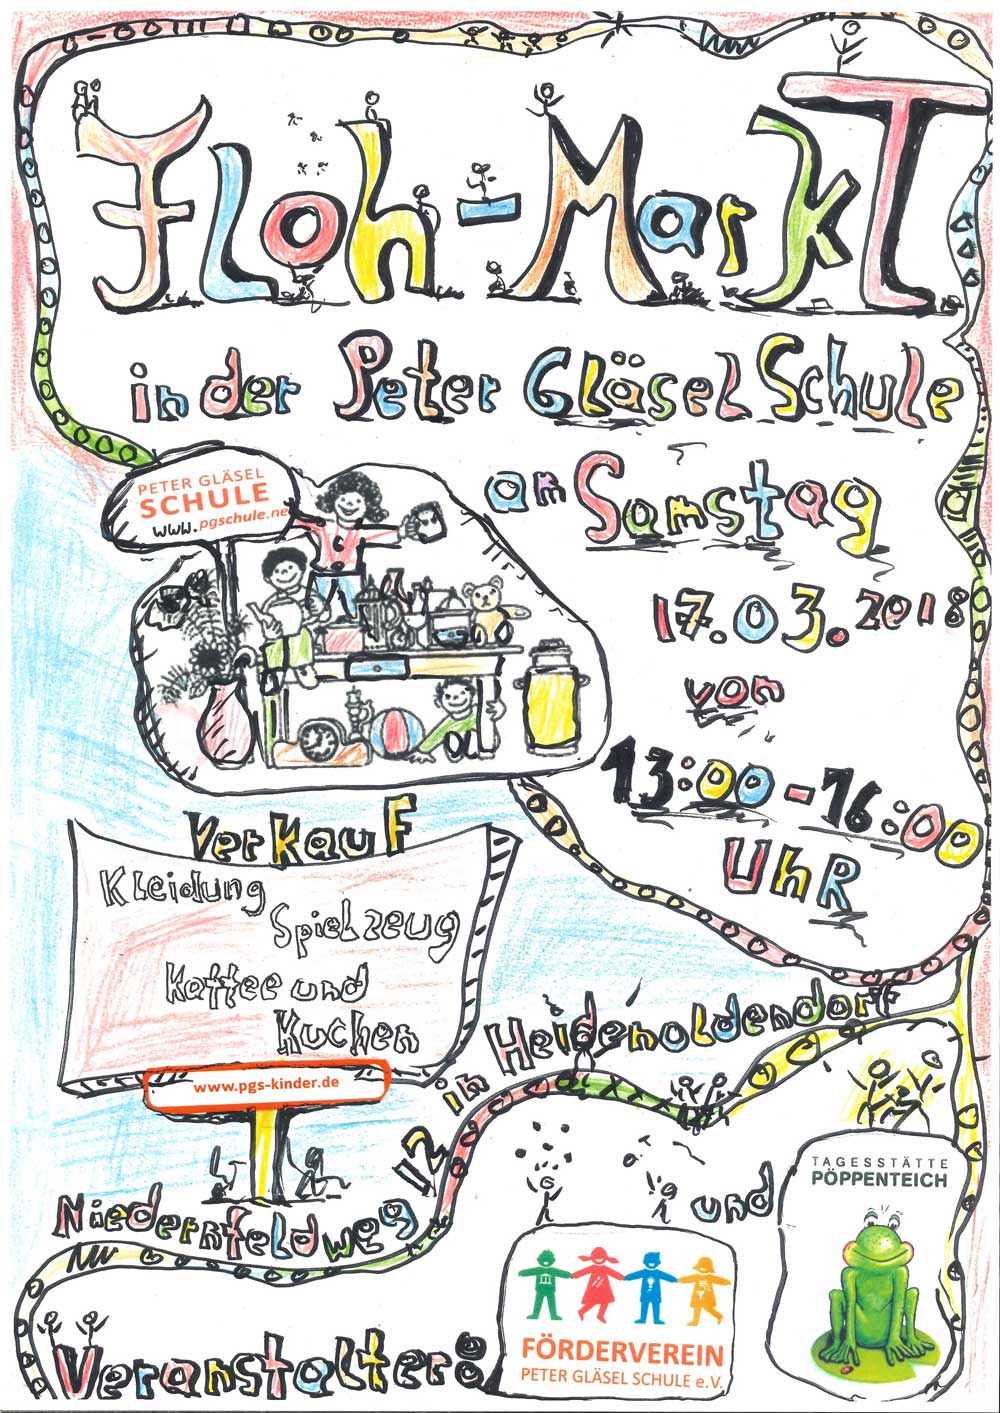 Floh-Markt
in der Peter Gläsel Schule
am Samstag
17.03.2018
von
13:00-16:00
Uhr
PETER GLÄSEL
SCHULE
www.pgschule.ne
Verkauf
Kleidung
Spielzeug
Kaffee und
Kuchen
www.pgs-kinder.de
in Heidenoldendorf
Niedernfeldweg 12
Veranstalter:
FÖRDERVEREIN
PETER GLÄSEL SCHULE e.V.
und
TAGESSTÄTTE
PÖPPENTEICH